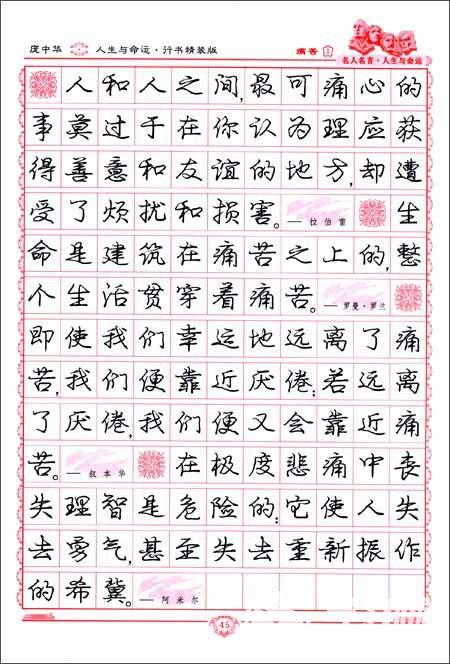 庞中华 人生与命运·行书精装版 痛苦 1
名人名言·人生与命运
人和人之间,最可痛心的
事莫过于在你认为理应获
得善意和友谊的地方,却遭
受了烦扰和损害。—拉伯雷 生
命是建筑在痛苦之上的,整
个生活贯穿着痛苦。—罗曼·罗兰
即使我们幸运地远离了痛
苦,我们便靠近厌倦;若远离
了厌倦,我们便又会靠近痛
苦。—叔本华 在极度悲痛中丧
失理智是危险的:它使人失
去勇气,甚至失去重新振作
的希冀。—阿米尔
45